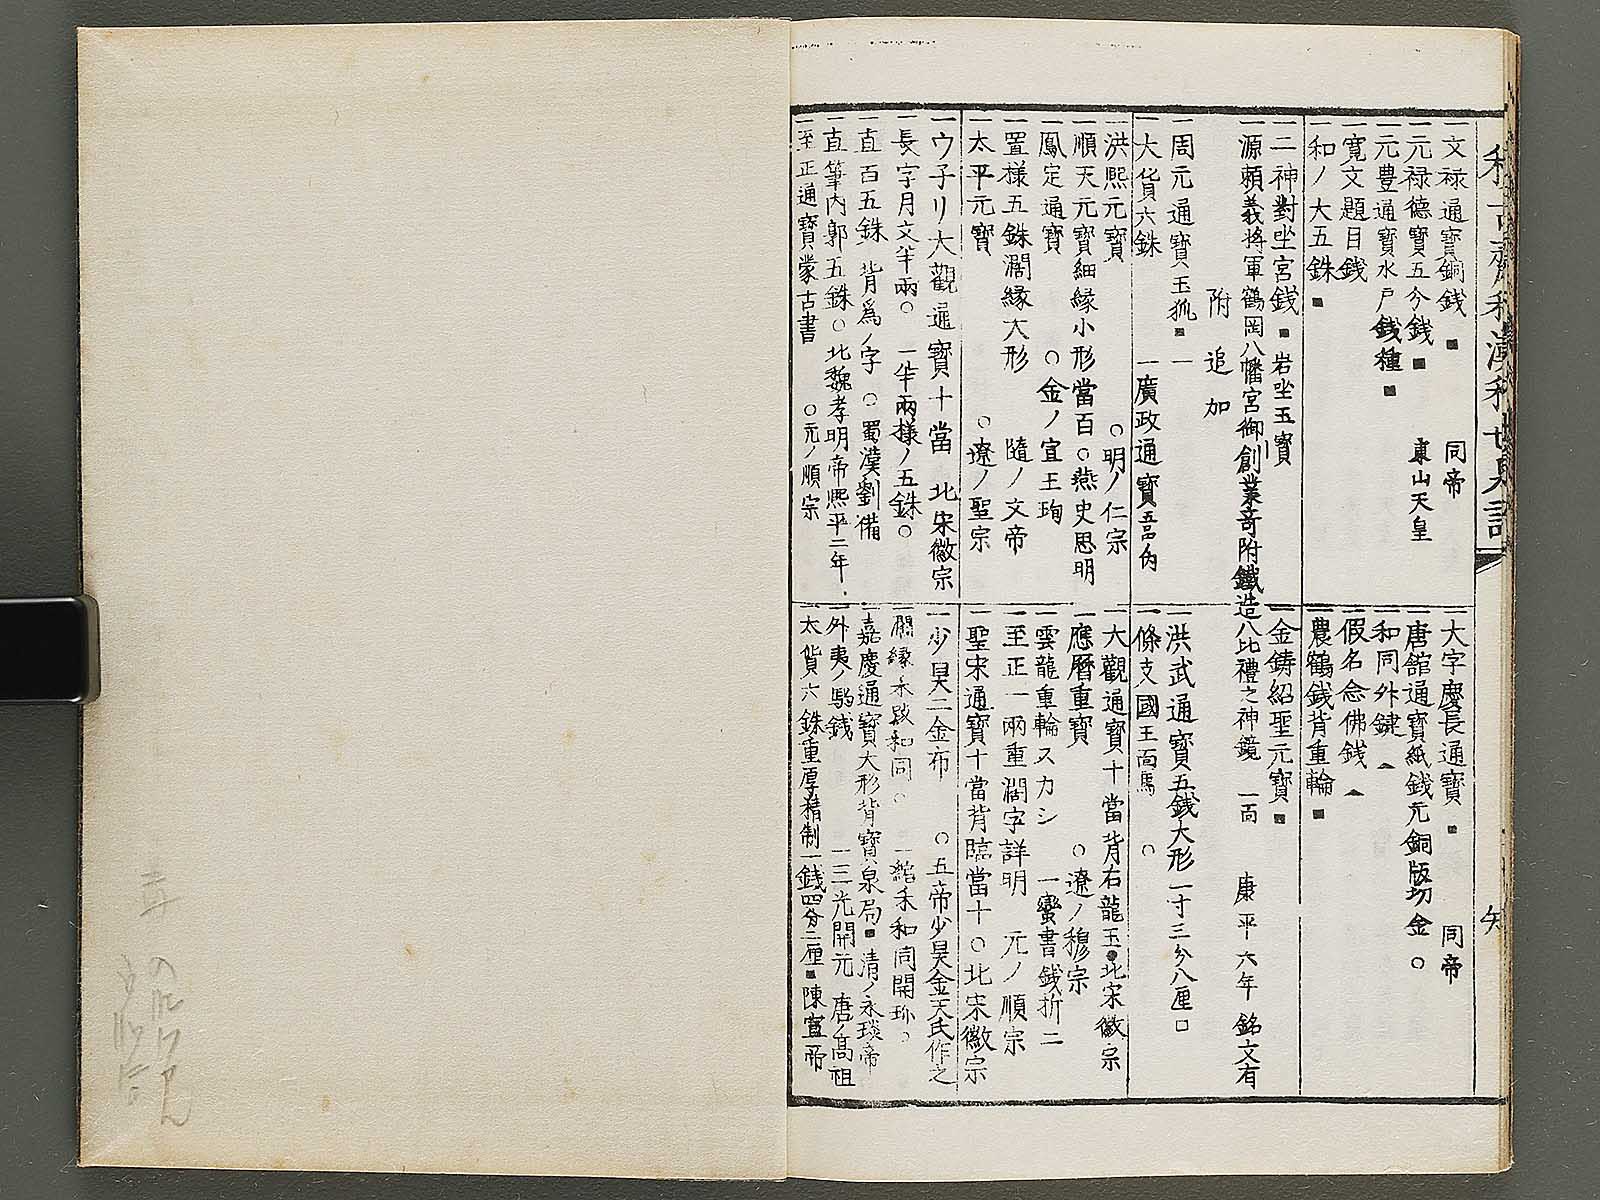 一文禄通寳銅銭 ■ 同帝
一元禄徳寳五今銭 ■ 東山天皇
一元豊通寳水戸銭種 ■
一寛文題目銭
一和ノ大五銖 ■
一大字慶長通寳 ■ 同帝
一唐舘通寳紙銭元銅版切金 ○
一和同外鍵
一假名念佛銭
一農鶴銭背重輪 ■
一二神對坐宮銭 ■ 岩坐玉寳
一金鋳紹聖元寳 ■
一源頼義将軍鶴岡八幡宮御創業寄附鐵造八比禮之神鏡 一面 康平六年銘文有
附追加
一周元通寳玉狐 ■
一大貨六銖
一廣政通寳
一洪武通寳五銭大形一寸三分八厘 □
一條支國王面馬 ○
一洪熙元寳 ○明ノ仁宗
一順天元寳細縁小形當百 ○燕史思明
一鳳定通寳 ○金ノ宣王珣
一置様五銖濶縁大形 隨ノ文帝
一太平元寳 ○遼ノ聖宗
一大觀通寳十當背右龍玉 ●北宋徽宗
一應暦重寳 ○遼ノ穆宗
一雲龍重輪スカシ 一蠻書銭折二
一至正一兩重濶字詳明 元ノ順宗
一聖宋通寳十當背臨當十 ○北宋徽宗
一ウ子リ大觀通寳十當 北宋徽宗
一長字月文半兩 ○ 一半兩様ノ五銖 ○
一直百五銖 背爲ノ字 ○蜀漢劉備
一直筆内郭五銖 ○北魏孝明帝熙平二年
一至正通寳蒙古書 ○元ノ順宗
一少昊二金布 ○五帝少昊金天氏作之
一濶縁禾襲和同 ○ 一綰禾和同開珎 ○
一嘉慶通寳大形背寳泉局 ■清ノ永琰帝
一外夷ノ馿銭 一三光開元 唐ノ高祖
一太貨六銖重厚精制一銭四分二厘 ■陳宣帝